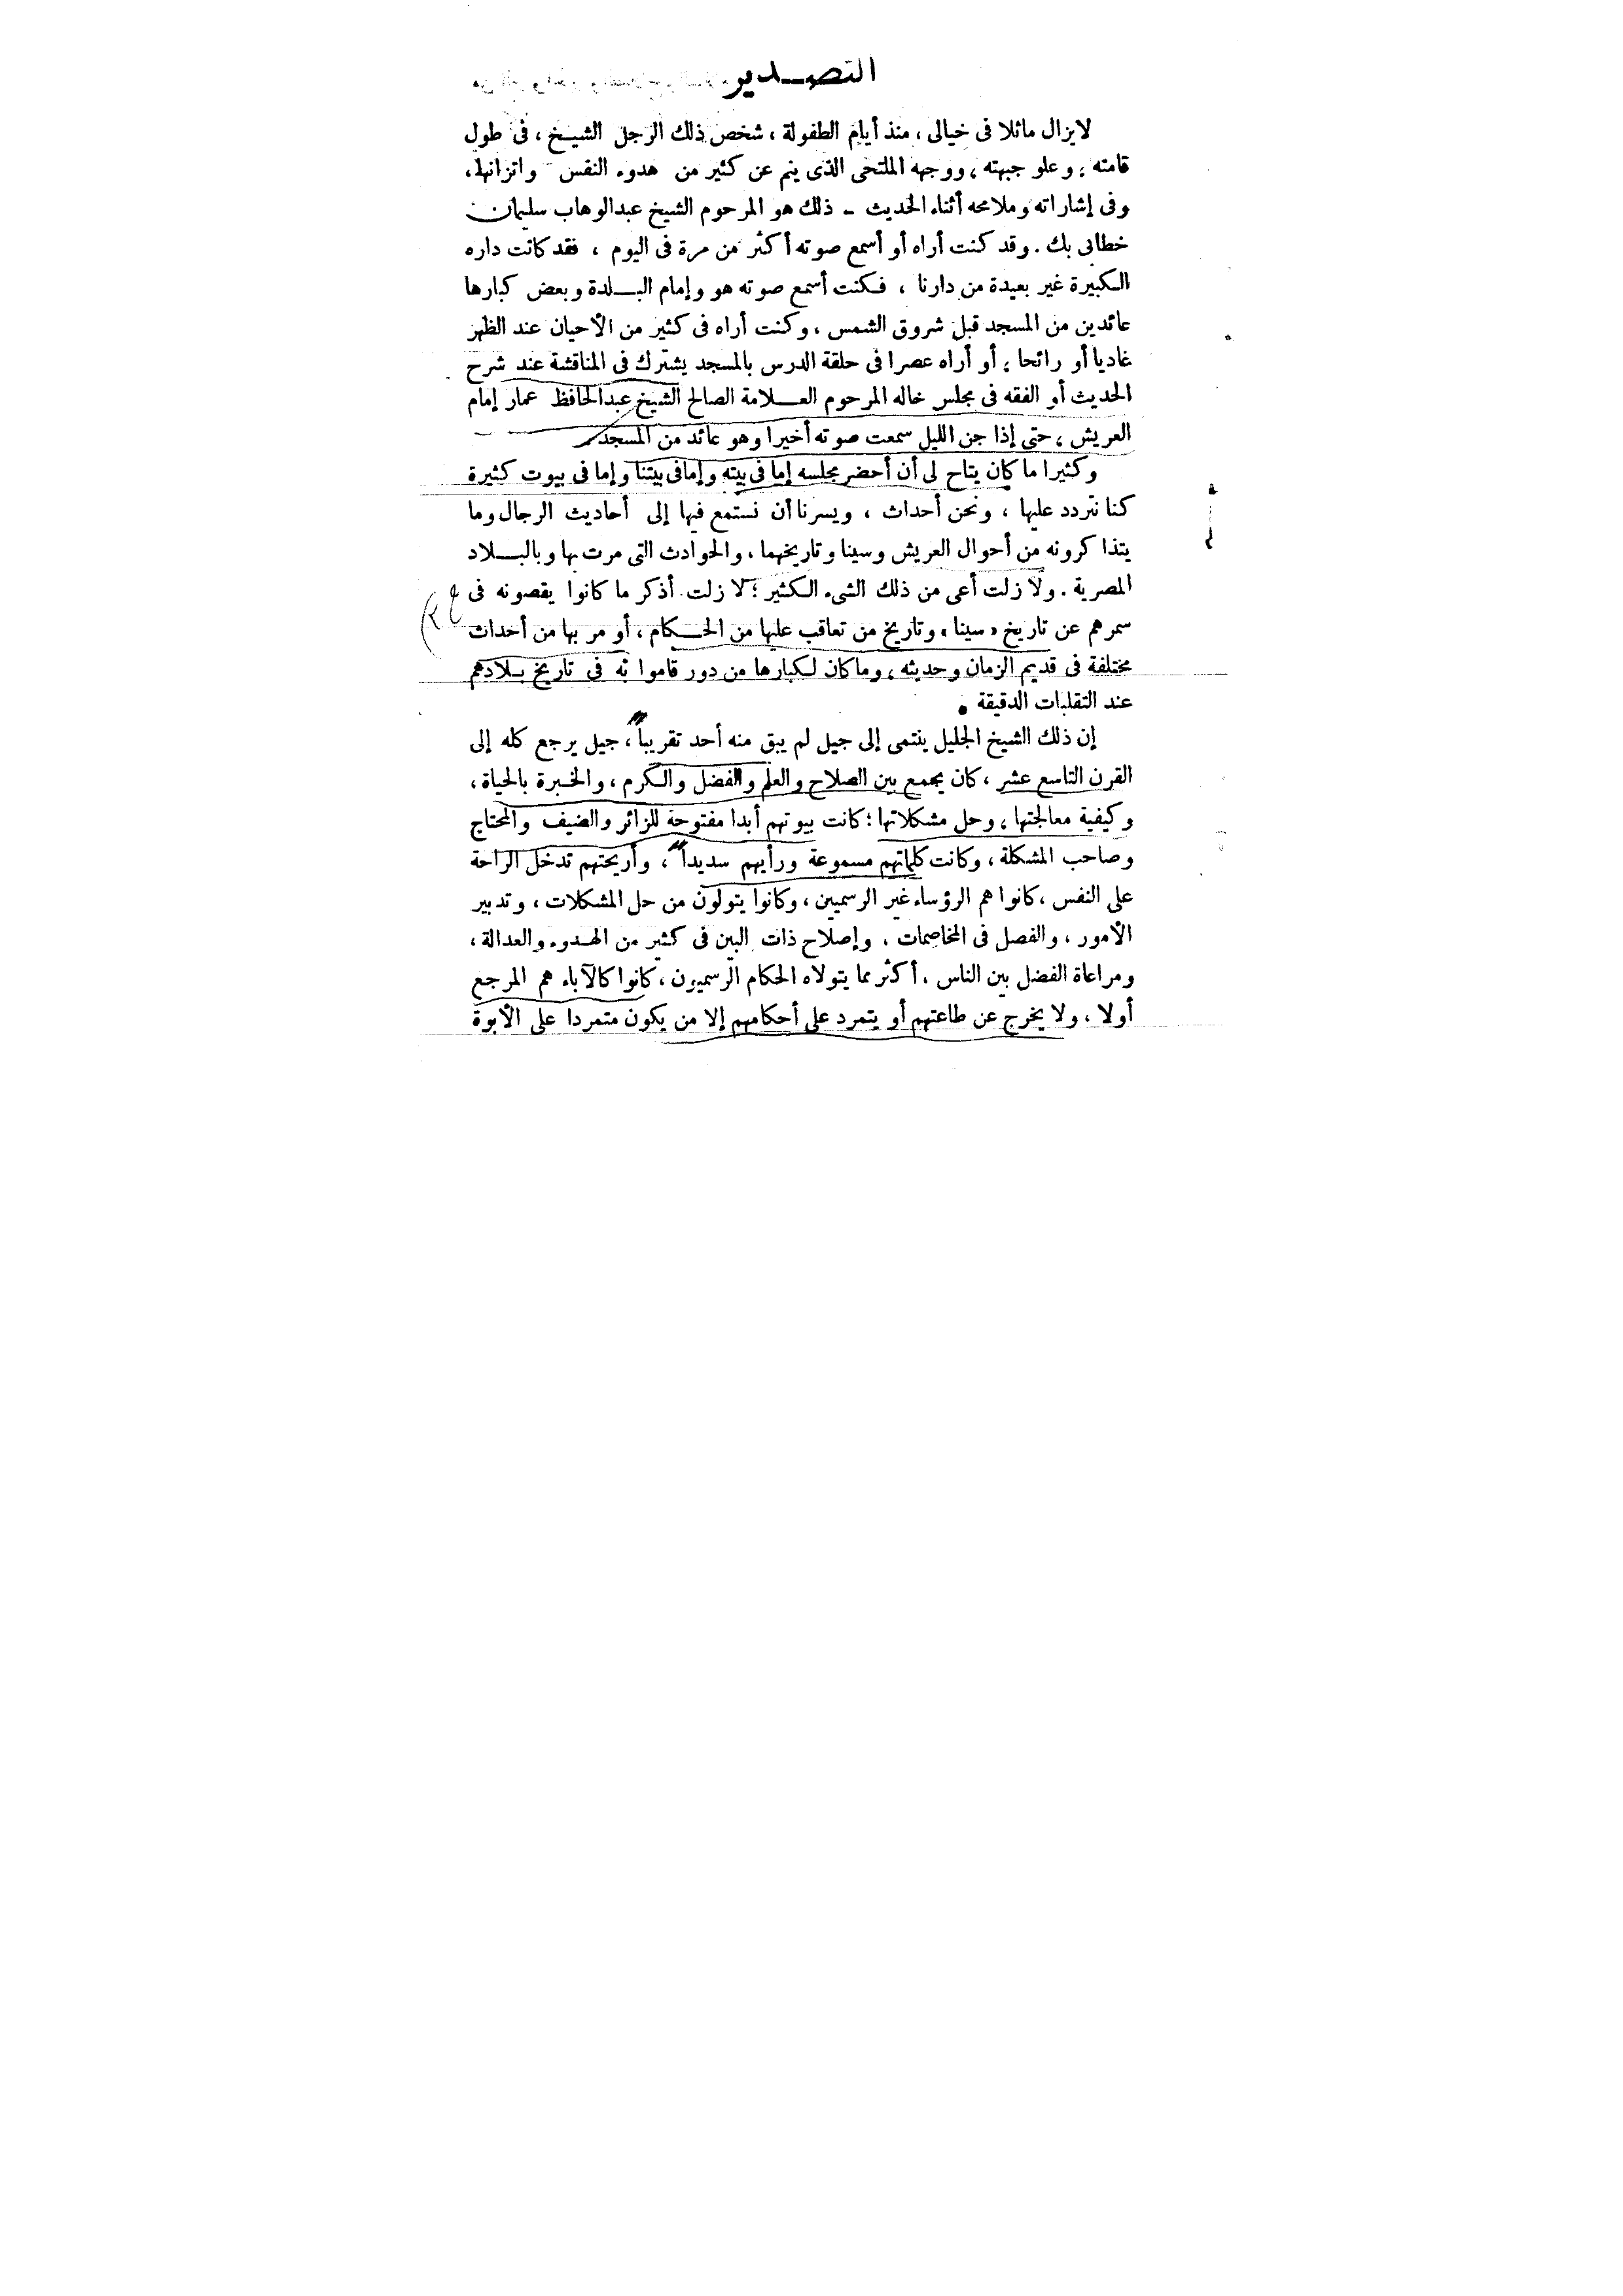 التصدير
لا يزال ماثلا فى خيالى ، منذ أيام الطفولة ، شخص ذلك الرجل الشيخ ، فى طول
قامته ، وعلو جبهته ، ووجهه الملتحى الذى ينم عن كثير من هدوء النفس واتزانها ،
وفى إشاراته وملامحه أثناء الحديث - ذلك هو المرحوم الشيخ عبدالوهاب سليمان
خطابى بك . وقد كنت أراه أو أسمع صوته أكثر من مرة فى اليوم ، فقد كانت داره
الكبيرة غير بعيدة من دارنا ، فكنت أسمع صوته هو وإمام البلدة وبعض كبارها
عائدين من المسجد قبل شروق الشمس ، وكنت أراه فى كثير من الأحيان عند الظهر
غاديا أو رائحا ، أو أراه عصرا فى حلقة الدرس بالمسجد يشترك فى المناقشة عند شرح
الحديث أو الفقه فى مجلس خاله المرحوم العلامة الصالح الشيخ عبدالحافظ عمار إمام
العريش ، حتى إذا جن الليل سمعت صوته أخيرا وهو عائد من المسجد
وكثيرا ما كان يتاح لى أن أحضر مجلسه إما فى بيته وإما فى بيتنا وإما فى بيوت كثيرة
كنا نتردد عليها ، ونحن أحداث ، ويسرنا أن نستمع فيها إلى أحاديث الرجال وما
يتذاكرونه من أحوال العريش وسينا وتاريخهما ، والحوادث التى مرت بها وبالبلاد
المصرية . ولا زلت أعى من ذلك الشىء الكثير ؛ لا زلت أذكر ما كانوا يقصونه فى
سمرهم عن تاريخ « سينا » وتاريخ من تعاقب عليها من الحكام ، أو مر بها من أحداث
مختلفة فى قديم الزمان وحديثه ، وما كان لكبارها من دور قاموا به فى تاريخ بلادهم
عند التقلبات الدقيقة .
إن ذلك الشيخ الجليل ينتمى إلى جيل لم يبق منه أحد تقريباً ، جيل يرجع كله إلى
القرن التاسع عشر ، كان يجمع بين الصلاح والعلم والفضل والكرم ، والخبرة بالحياة ،
وكيفية معالجتها ، وحل مشكلاتها ؛ كانت بيوتهم أبدا مفتوحة للزائر والضيف والمحتاج
وصاحب المشكلة ، وكانت كلماتهم مسموعة ورأيهم سديداً ، وأريحتهم تدخل الراحة
على النفس ، كانوا هم الرؤساء غير الرسميين ، وكانوا يتولون من حل المشكلات ، وتدبير
الأمور ، والفصل فى المخاصمات ، وإصلاح ذات البين فى كثير من الهدوء والعدالة ،
ومراعاة الفضل بين الناس ، أكثر مما يتولاه الحكام الرسميون ، كانوا كالآباء هم المرجع
أولا ، ولا يخرج عن طاعتهم أو يتمرد على أحكامهم إلا من يكون متمردا على الأبوة